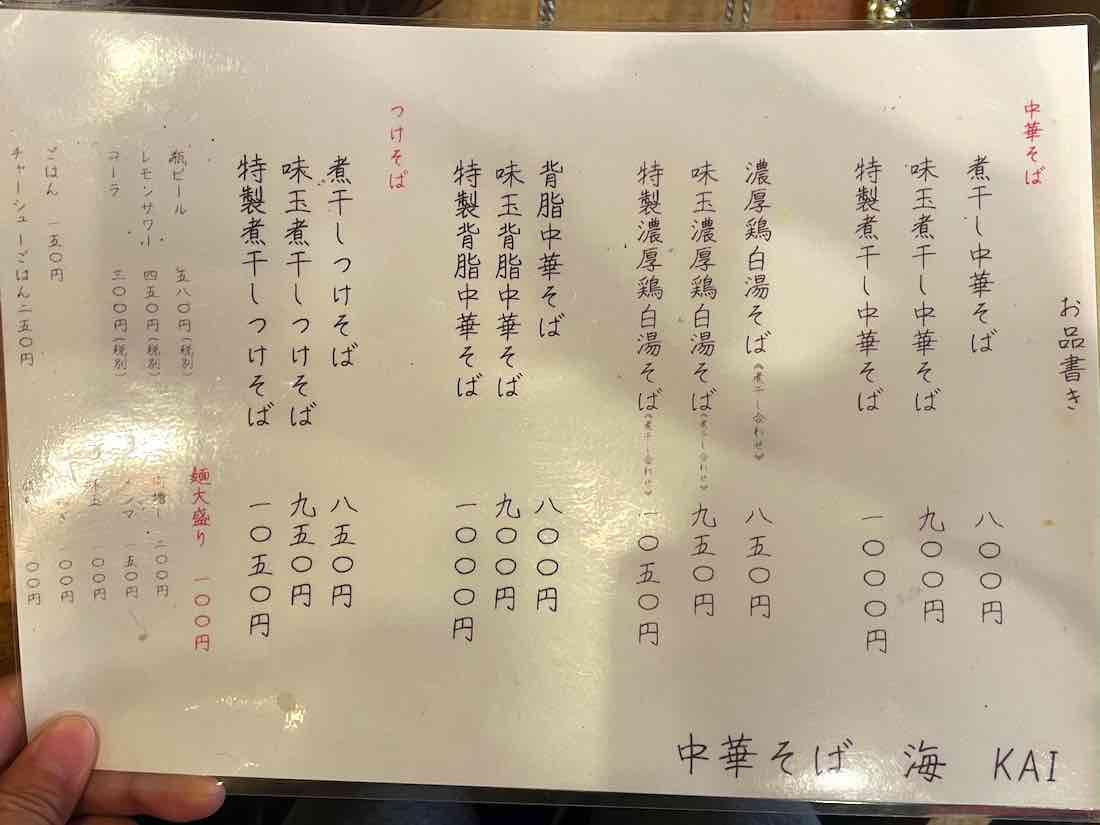 お品書き
中華そば
煮干し中華そば 八〇〇円
味玉煮干し中華そば 九〇〇円
特製煮干し中華そば 一〇〇〇円
濃厚鶏白湯そば《煮干し合わせ》 八五〇円
味玉濃厚鶏白湯そば《煮干し合わせ》 九五〇円
特製濃厚鶏白湯そば《煮干し合わせ》 一〇五〇円
背脂中華そば 八〇〇円
味玉背脂中華そば 九〇〇円
特製背脂中華そば 一〇〇〇円
つけそば
煮干しつけそば 八五〇円
味玉煮干しつけそば 九五〇円
特製煮干しつけそば 一〇五〇円
麺大盛り 一〇〇円
瓶ビール 五八〇円(税別)
レモンサワー 四五〇円(税別)
コーラ 三〇〇円(税別)
肉増し 二〇〇円
メンマ 一五〇円
味玉 一〇〇円
一〇〇円
一〇〇円
ごはん 一五〇円
チャーシューごはん 二五〇円
中華そば 海 KAI